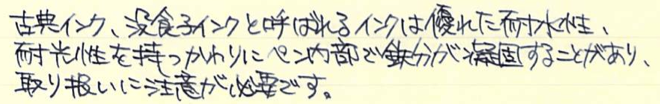 古典インク、没食子インクと呼ばれるインクは優れた耐水性、
耐光性を持つかわりにペン内部で鉄分が凝固することがあり、
取り扱いに注意が必要です。